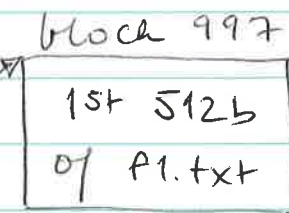 block 997
1st 512b
of f1.txt